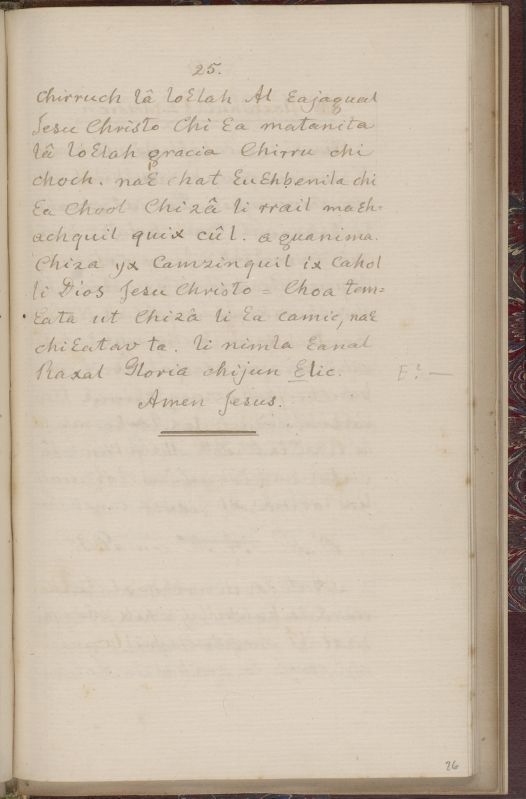 25.
chirruch lâ loElah Al Eajagual
Jesu Christo Chi Ea matanita
lâ loElah gracia Chirru chi
choch. naE chat EuEhbenila chi
Ea Chool Chizâ li rrail maEh=
achquil quix cûl. a guanima.
Chiza yx Camzinquil ix Cahol
li Dios Jesu Christo = Choa tem=
Eata ut Chizâ li Ea camic, naE
chiEutav ta. li nimla Eanal
Raxal Gloria chijun Elic. E? —
Amen Jesus.
26